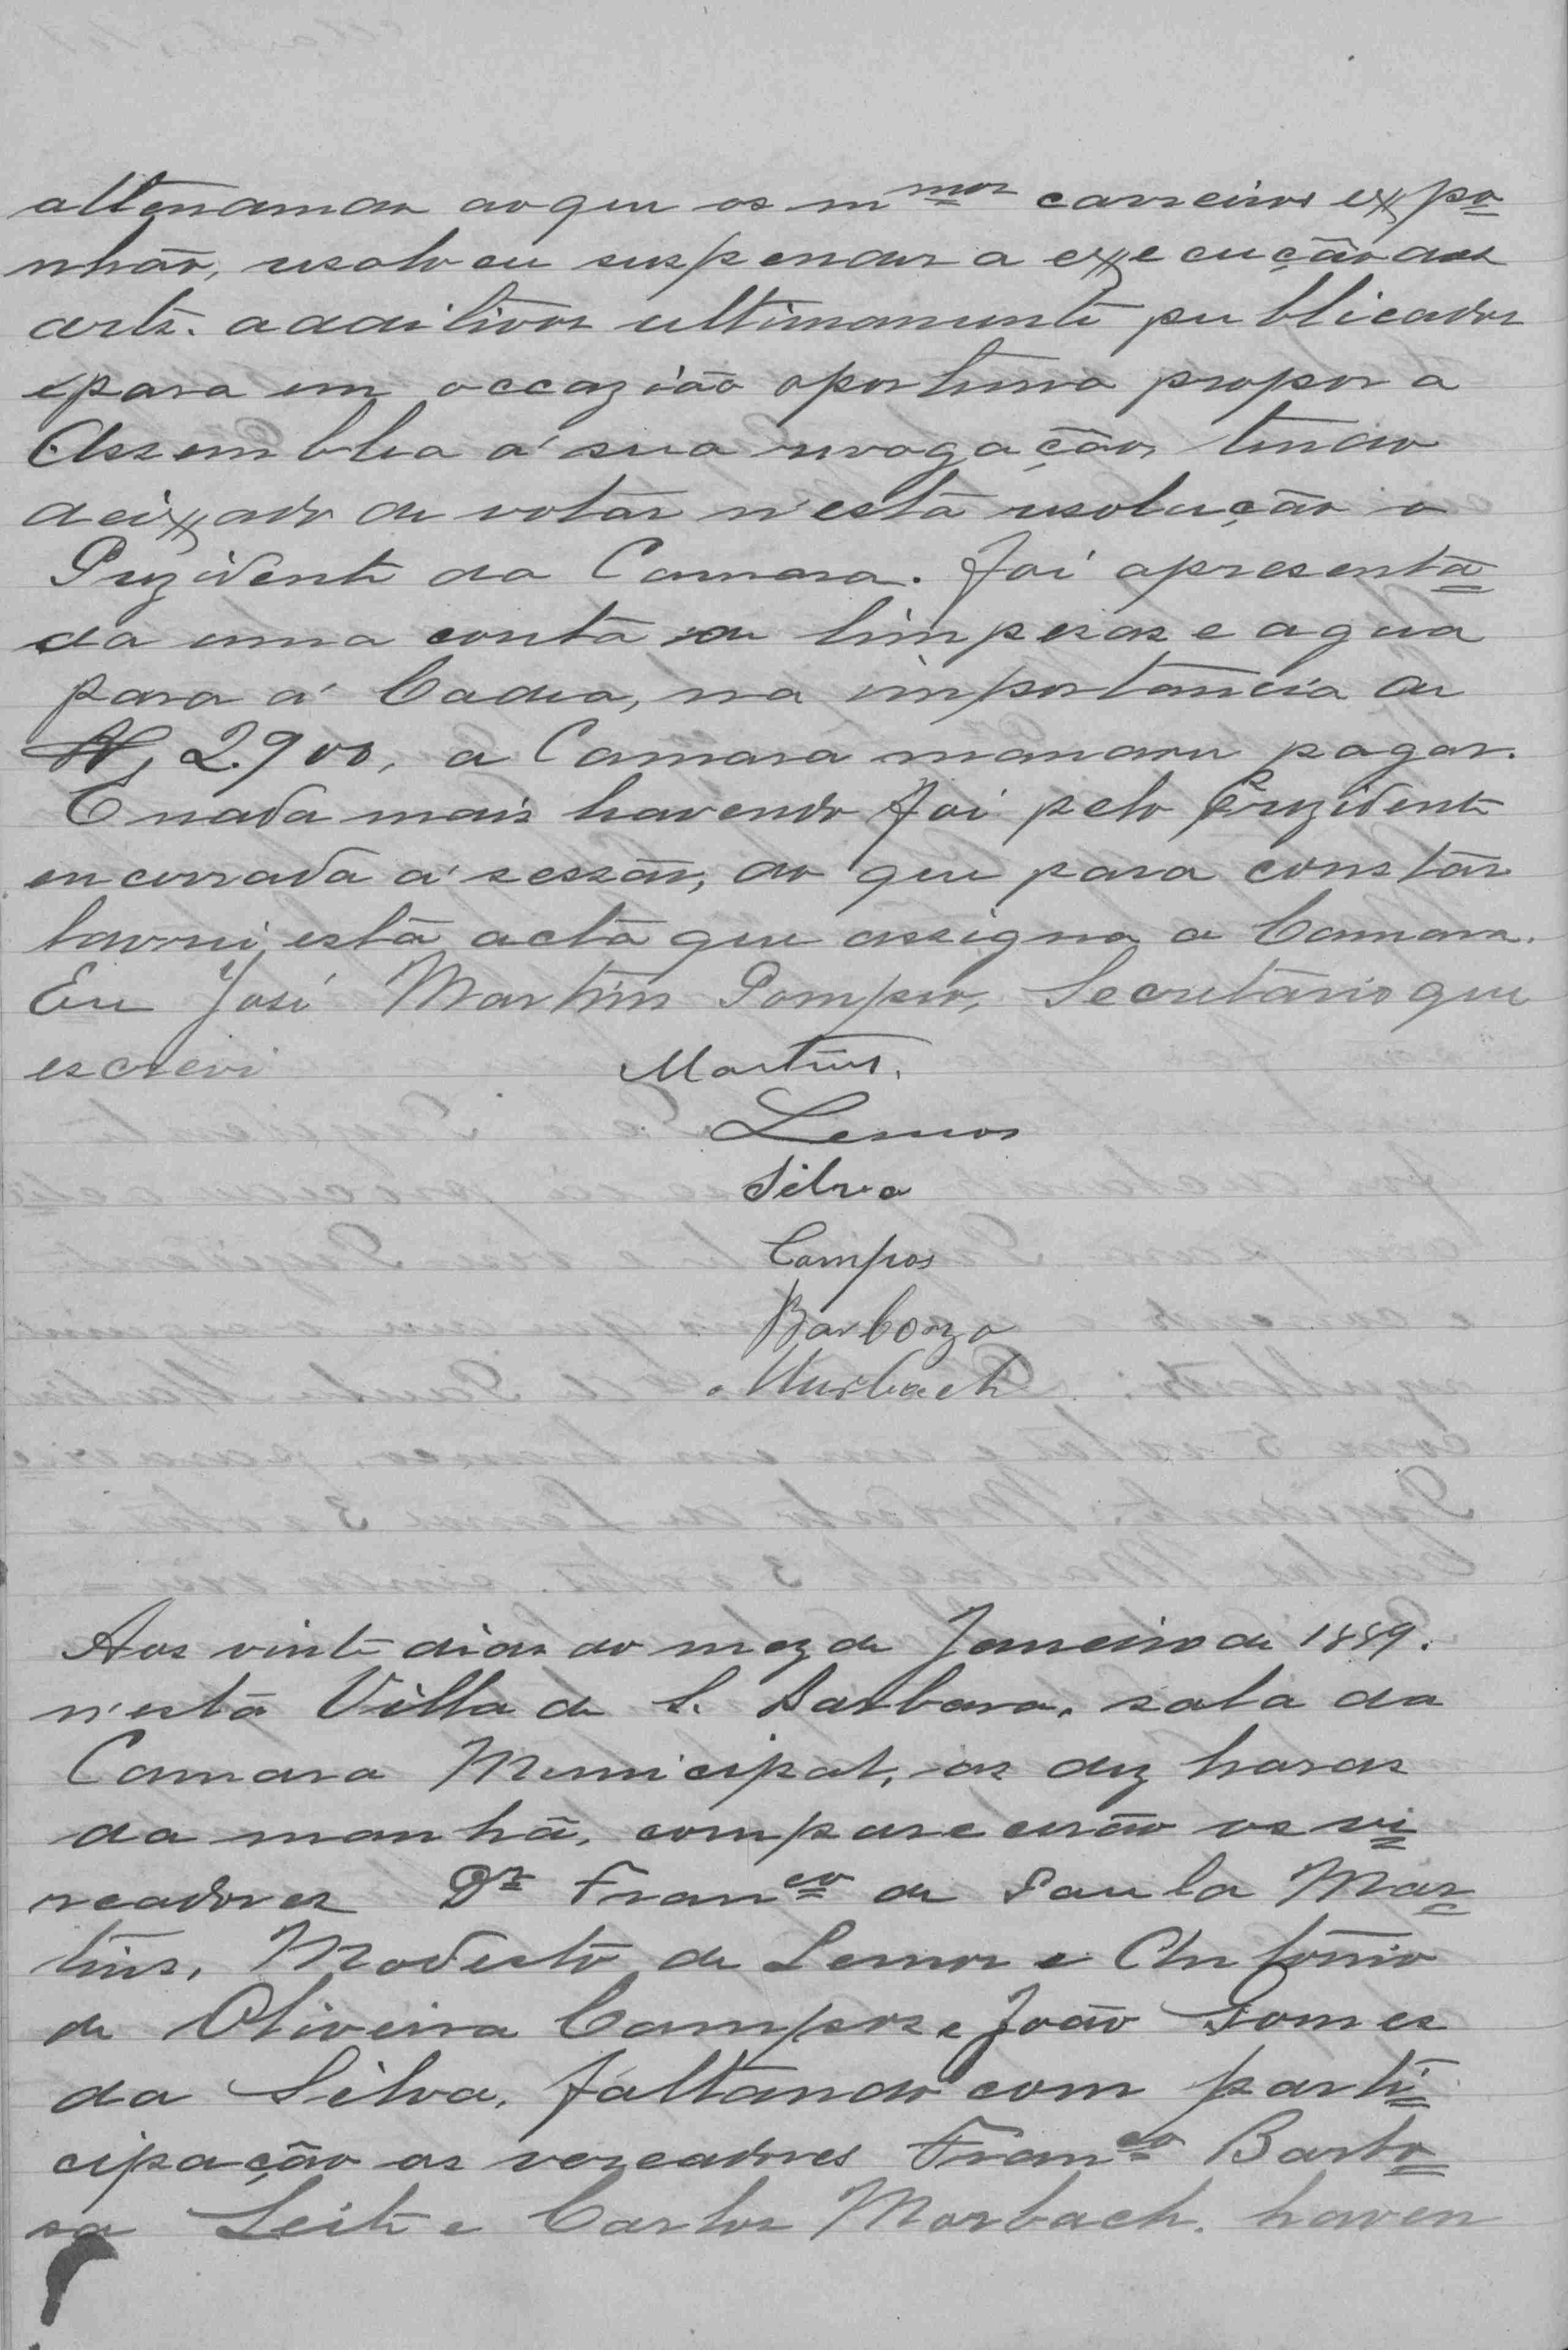 attendendo ao que os m.mos carreiros expo=
nhão, resolveu suspender a execução dos
arts. additivos ultimamente publicados
e para em occazião oportuna propor a
Assemblea a' sua revogação, tendo
deixado de votar n'esta resolução o
Prezidente da Camara. Foi apresenta=
da uma conta de limpesas e agua
para a' Cadea, na importancia de
2.900, a Camara mandou pagar.
E nada mais havendo foi pelo Prezidente
encerrada a' sessão, do que para constar
lavrei esta acta que assigna a Camara.
Eu José Martins Pompeo, Secretario que
escrevi
Martins.
Lemos
Silva
Campos
Barboza
Murbach
Aos vinte dias do mez de Janeiro de 1889.
n'esta Villa de S. Barbara, sala da
Camara Municipal, as dez horas
da manhã, comparecerão os ve=
readores Dr. Franco de Paula Mar=
tins, Modesto de Lemos e Antonio
de Oliveira Campos e João Gomes
da Silva, faltando com parti=
cipação os vereadores Franco Barbo=
sa Leite e Carlos Morbach. haven